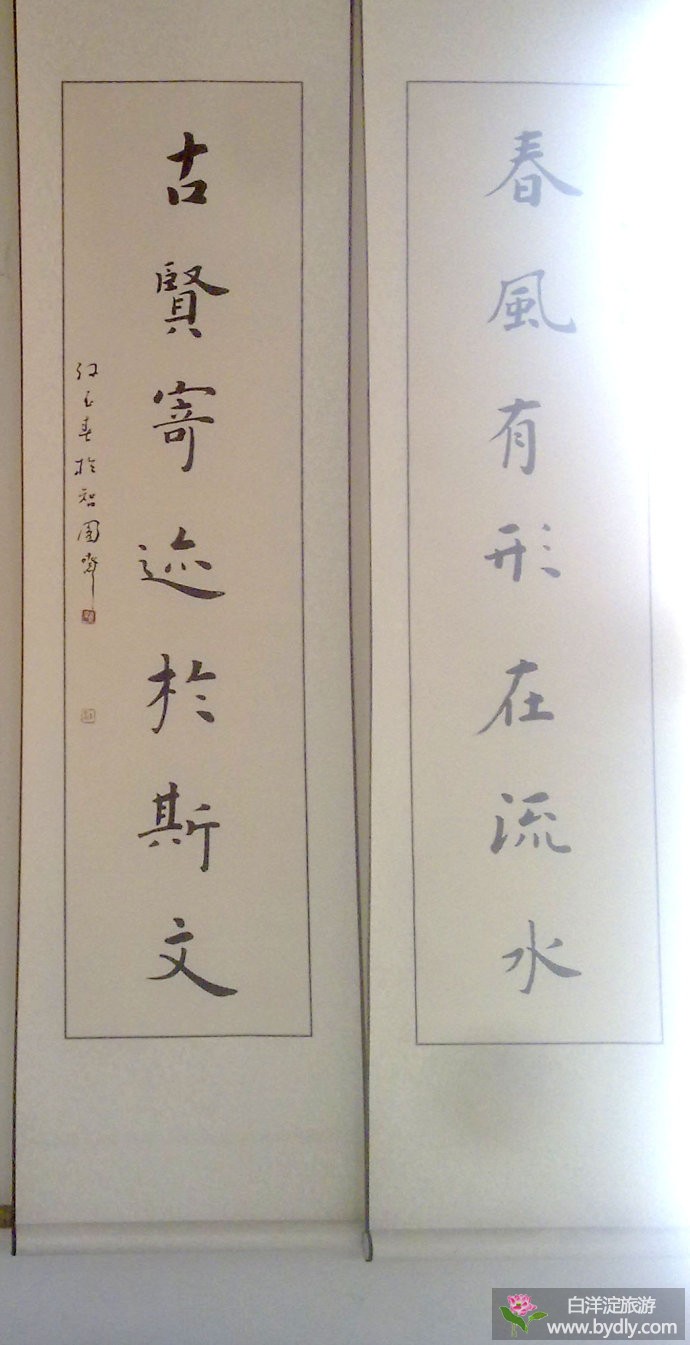 春風有形在流水
古賢寄迹於斯文
白洋淀旅游
www.bydly.com